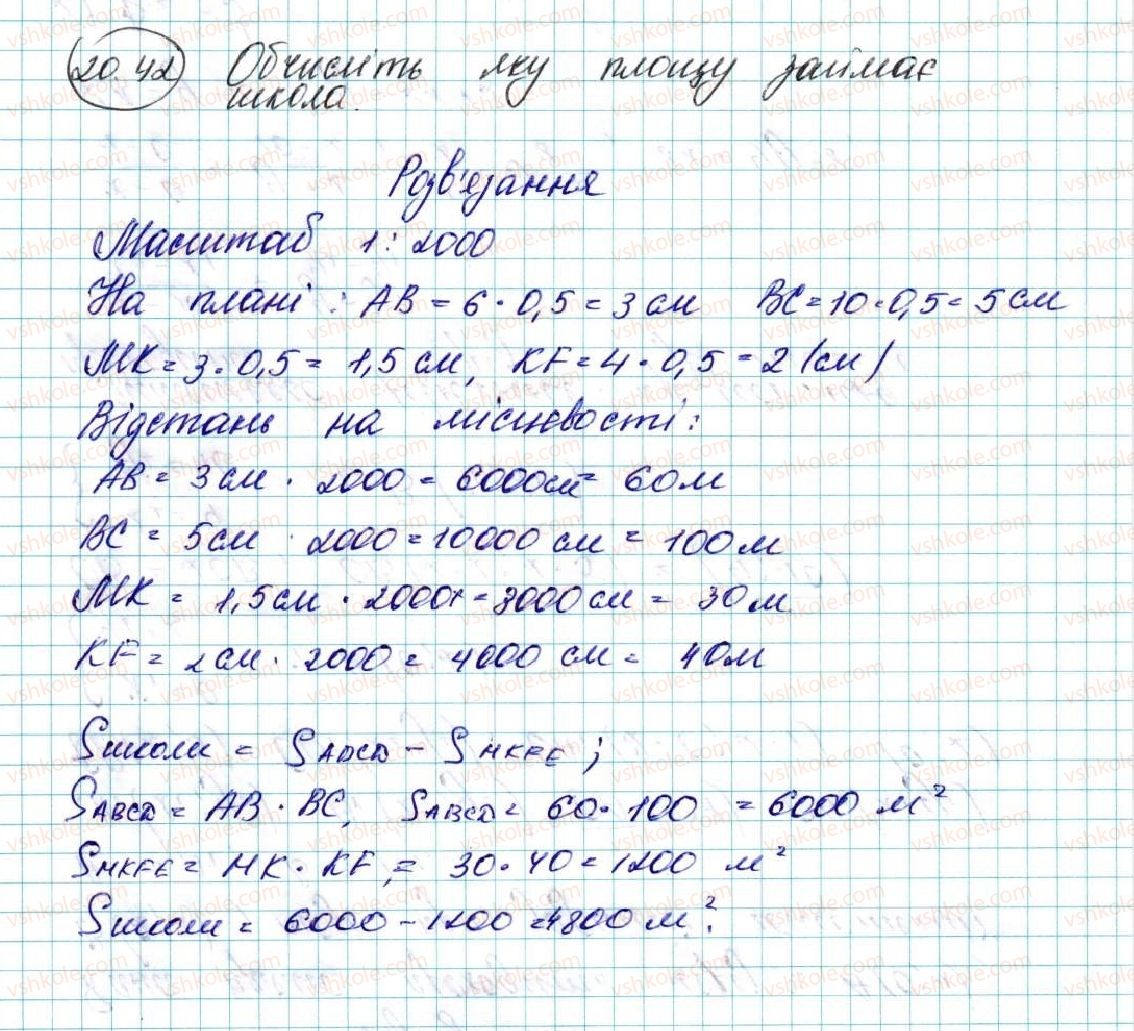 20.42 Обчисліть яку площу займає
школа.
Розв'язання
Масштаб 1:2000
На плані: AB = 6 · 0,5 = 3 см BC = 10 · 0,5 = 5 см
MK = 3 · 0,5 = 1,5 см, KF = 4 · 0,5 = 2 (см)
Відстань на місцевості:
AB = 3 см · 2000 = 6000 см = 60 м
BC = 5 см · 2000 = 10000 см = 100 м
MK = 1,5 см · 2000 = 3000 см = 30 м
KF = 2 см · 2000 = 4000 см = 40 м
S школи = S ABCD - S MKFE ;
S ABCD = AB · BC, S ABCD = 60 · 100 = 6000 м²
S MKFE = MK · KF, = 30 · 40 = 1200 м²
S школи = 6000 - 1200 = 4800 м².
vshkole.com